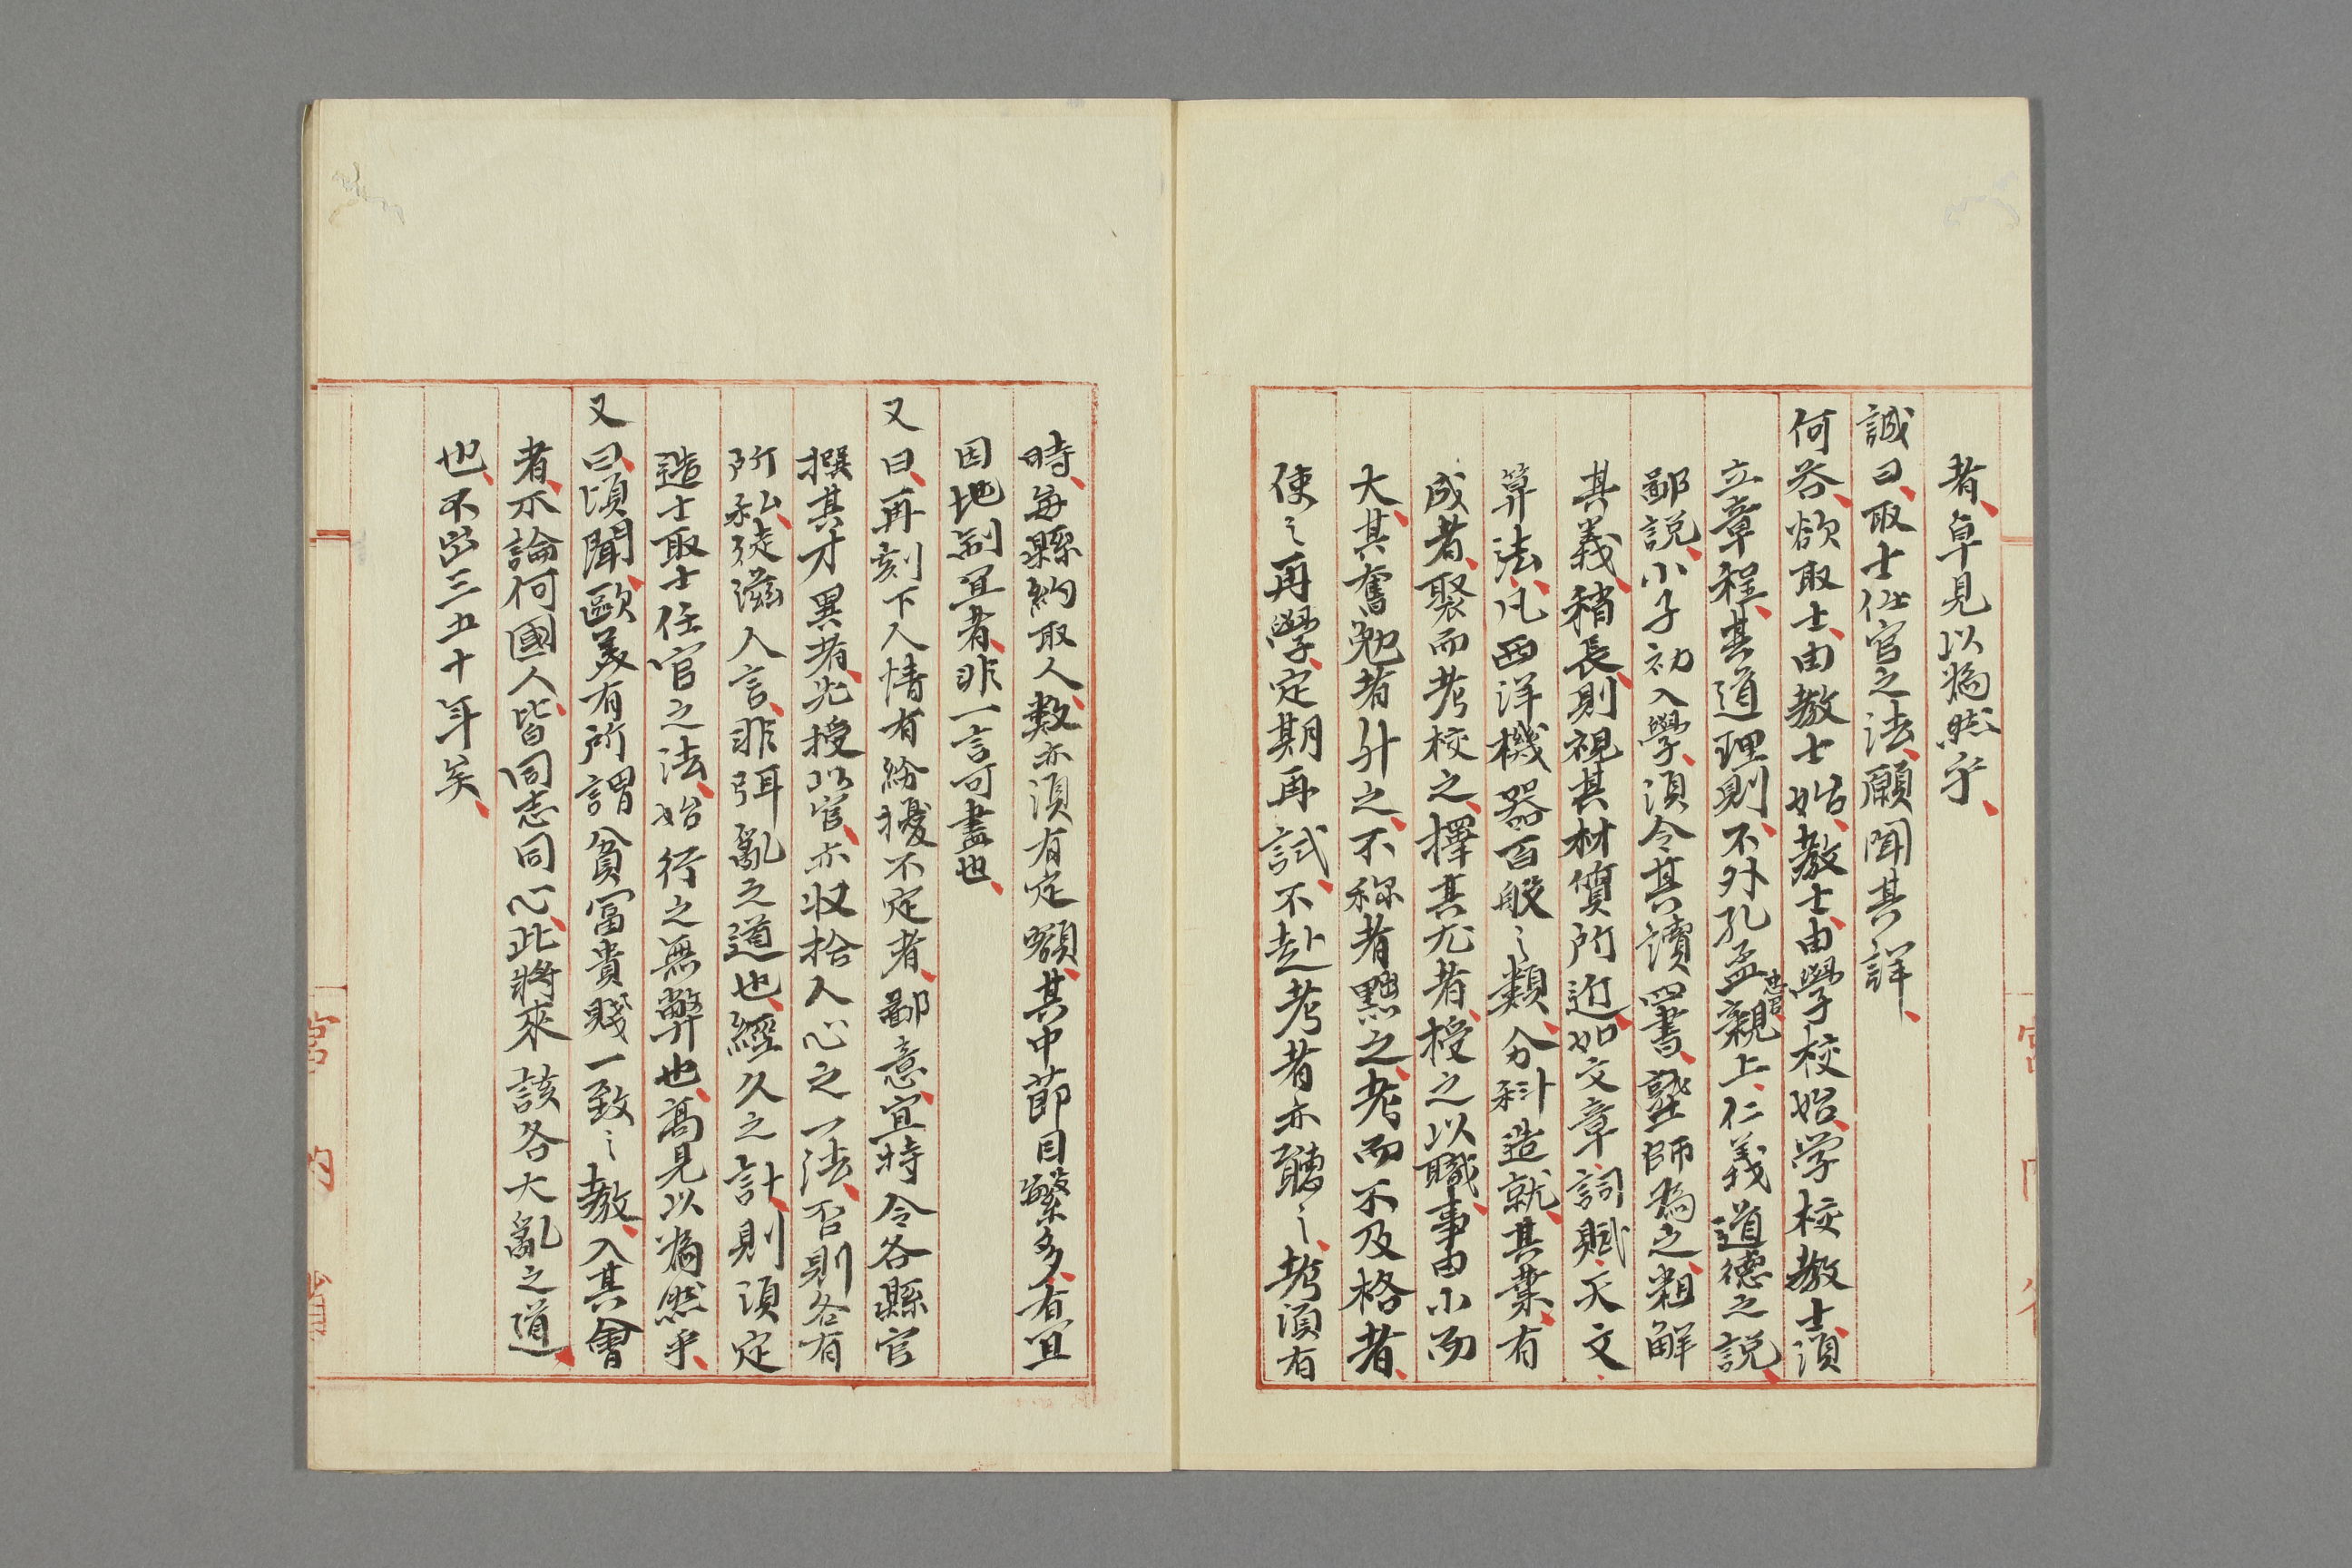 者、卓見以為然乎、
誠曰、取士仕官之法、願聞其詳、
何答、欲取士、由教士始、教士、由學校始、学校教士、須
立章程、其道理則、不外孔孟忠君親上、仁義道德之説、
鄙説、小子初入學、須令其讀四書、塾師為之、粗解
其義、稍長、則視其材質所近、如文章、詞賦、天文、
算法、凡西洋機器百般之類、分科造就、其業、有
成者、聚而考校之、擇其尤者、授之以職、事由小而
大、其奮勉者升之、不称者黜之、考而不及格者、
使之再學、定期再試、不赴考者亦聽之、考須有
時、每縣約取人數、亦須有定額、其中節目繁多、有宜
因地制宜者、非一言可盡也、
又曰、再刻下人情有紛擾不定者、鄙意、宜特令各縣官
撰其才異者、先授以官、亦収拾人心之一法、否則各有
所私、徒滋人言、非弭亂之道也、經久之計、則須定
造士取士任官之法、始行之無弊也、高見以為然乎、
又曰、頃聞、歐美有所謂貧富貴賤一致之教、入其會
者、不論何國人、皆同志同心、此將來該各大亂之道
也、不出三五十年矣、